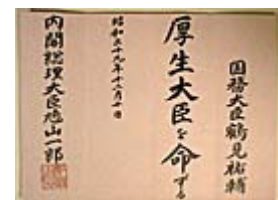 国務大臣鶴見祐輔
厚生大臣を命ずる
昭和二十九年十二月十日
内閣総理大臣鳩山一郎